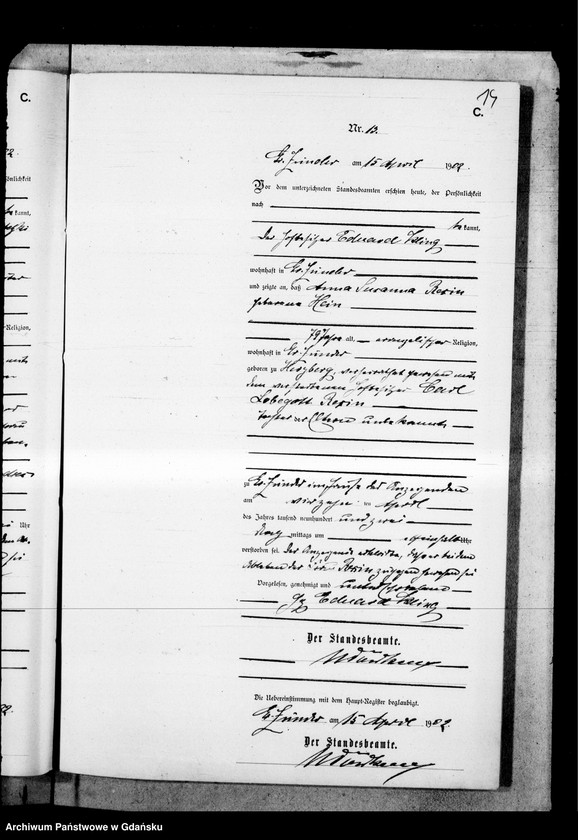 C.
14
C.
Nr. 13.
Gr. Zünder am 15 April 1902.
Vor dem unterzeichneten Standesbeamten erschien heute, der Persönlichkeit
nach
be kannt,
der Hofbesitzer Eduard Kling
wohnhaft in Gr. Zünder
und zeigte an, daß Anna Susanna Rexin
geborene Hein
79 Jahre alt, evangelischer Religion,
wohnhaft in Gr. Zünder
geboren zu Herzberg, verheirathet gewesen mit
dem verstorbenen Hofbesitzer Carl
Lebegott Rexin
der Eltern unbekannt
zu Gr. Zünder im Hause des Anzeigenden
am vierzehn ten April
des Jahres tausend neunhundert und zwei
Nach mittags um Uhr
verstorben sei. Der Anzeigende erklärte, daß er bei dem
Ableben der Rexin zugegen gewesen sei
Vorgelesen, genehmigt und unterschrieben
gz Eduard Kling
Der Standesbeamte.
Die Uebereinstimmung mit dem Haupt-Register beglaubigt.
Gr. Zünder am 15 April 1902.
Der Standesbeamte.
Archiwum Państwowe w Gdańsku